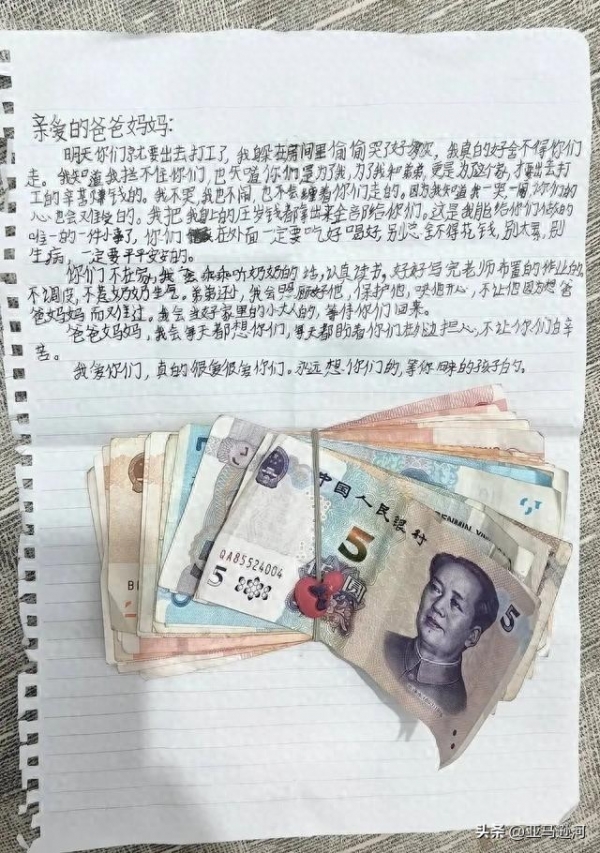 亲爱的爸爸妈妈:
明天你们就要出去打工了,我躲在房间里偷偷哭了好多次,我真的好舍不得你们
走。我知道我拦不住你们,也知道你们是为了我,为了我和弟弟,更是为这个家,才出去打
工的辛苦赚钱的。我不哭,我也不闹,也不会缠着你们走的。因为我知道我一哭一闹你们的
心也会难受的。我把我的压岁钱都拿出来全部给你们。这是我能给你们做的
唯一的一件小事了,你们在外面一定要吃好喝好,别总舍不得花钱,别太累,别
生病,一定要平平安安的。
你们不在家,我会乖乖听奶奶的话,认真读书。好好写完老师布置的作业的。
不调皮,不惹奶奶生气。弟弟还小,我会照顾好他,保护他,哄他开心,不让他因为想爸
爸妈妈而难过。我会当好家里的小大人的,等待你们回来。
爸爸妈妈,我会每天都想你们,每天都盼着你们在外边担心,不让你们白辛
苦。
我爱你们,真的很爱很爱你们。永远想你们的,等你回来的孩子的。
中国人民银行
QA85524004
5
5
5
圆
头条 @亚马逊河